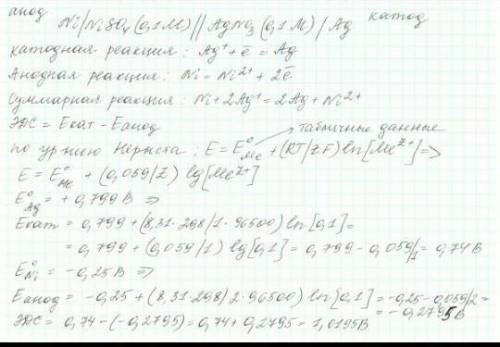 анод катод
Ni/NiSO₄ (0,1М) // AgNO₃ (0,1М) / Ag
катодная реакция: Ag⁺ + ē = Ag
Анодная реакция: Ni = Ni²⁺ + 2ē
Суммарная реакция: Ni + 2Ag⁺ = 2Ag + Ni²⁺
ЭДС = Eкат – Eанод
табличные данные
по ур-нию Нернста: E = E⁰Me + (RT/zF) ln[Meᶻ⁺] =>
E = E⁰Me + (0,059/z) lg[Meᶻ⁺]
E⁰Ag = + 0,799 В =>
Eкат = 0,799 + (8,31·298/1·96500) ln[0,1] =
= 0,799 + (0,059/1) lg[0,1] = 0,799 – 0,059/1 = 0,74 В
E⁰Ni = –0,25 В =>
Eанод = –0,25 + (8,31·298/2·96500) ln[0,1] = –0,25 – 0,059/2 =
= –0,2795 В
ЭДС = 0,74 – (–0,2795) = 0,74 + 0,2795 = 1,0195 В